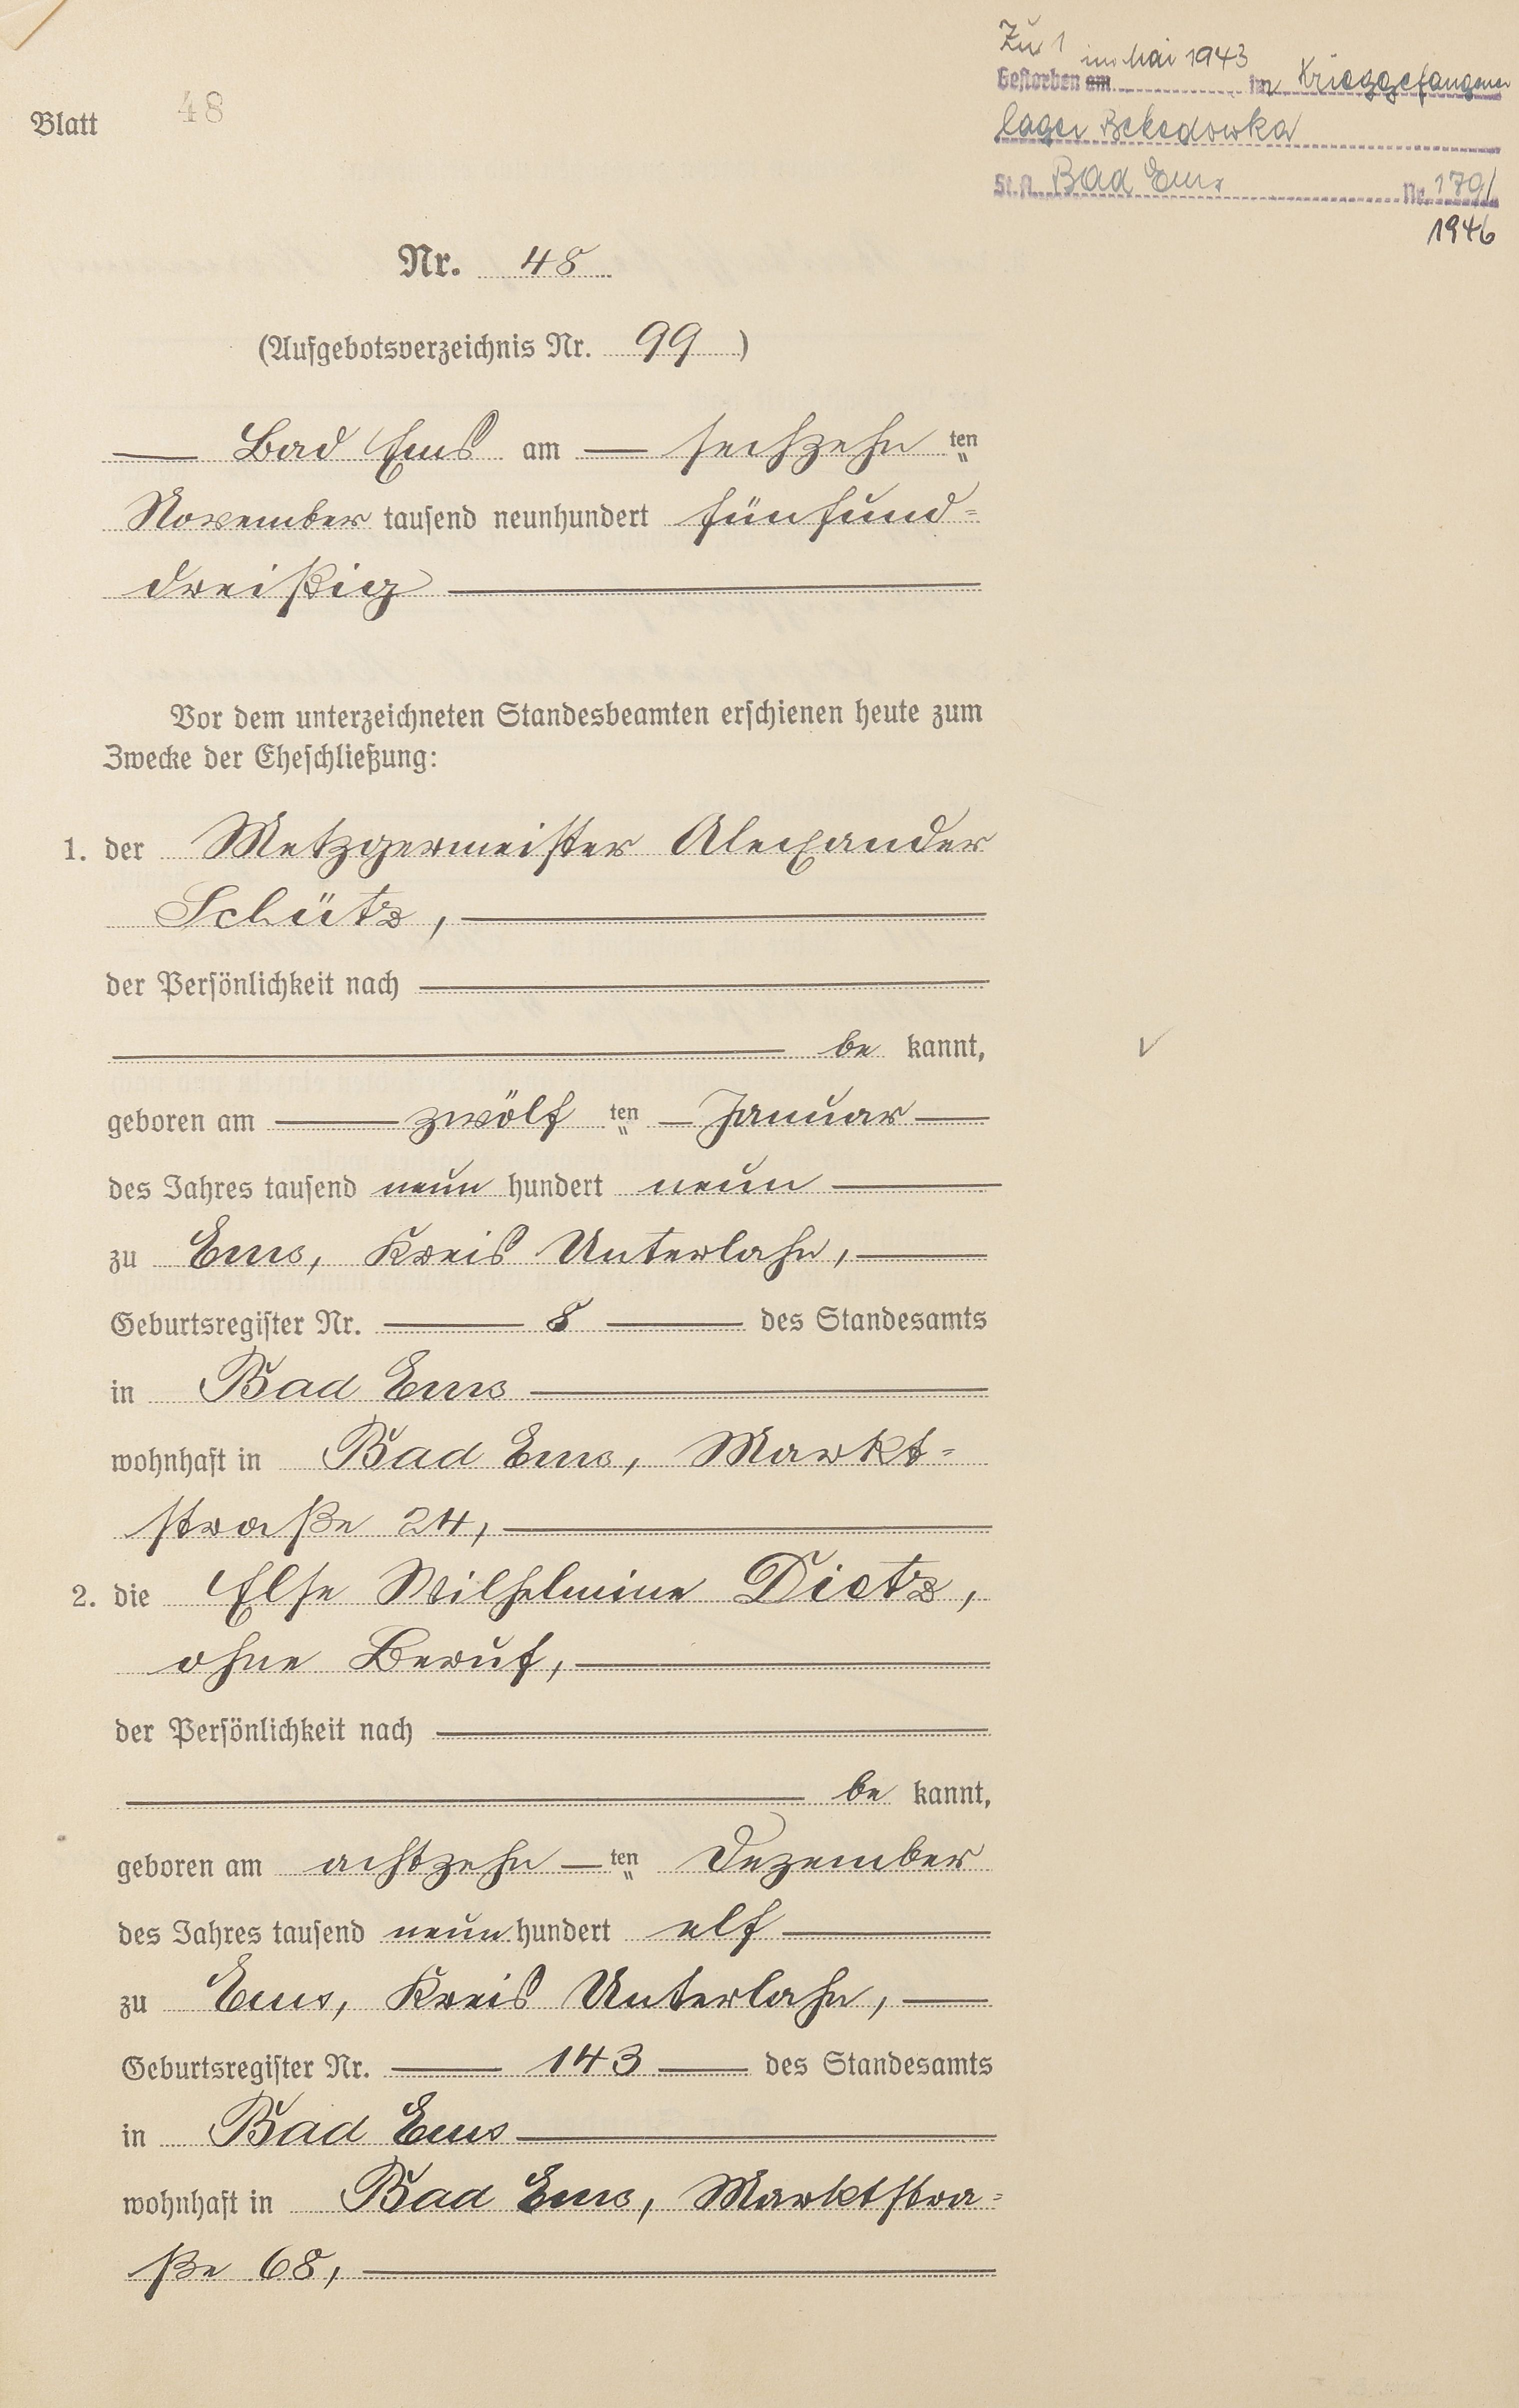 Zu 1
im Mai 1943
Gestorben am im Kriegsgefangenen
lager Beketowka
St.A. Bad Ems Nr. 179/
1946
Blatt 48
Nr. 48
(Aufgebotsverzeichnis Nr. 99)
Bad Ems am sechzehn ten
November tausend neunhundert fünfund-
dreißig
Vor dem unterzeichneten Standesbeamten erschienen heute zum
Zwecke der Eheschließung:
1. der Metzgermeister Alexander
Schütz,
der Persönlichkeit nach
be kannt,
geboren am zwölf ten Januar
des Jahres tausend neun hundert neun
zu Ems, Kreis Unterlahn,
Geburtsregister Nr. 8 des Standesamts
in Bad Ems
wohnhaft in Bad Ems, Markt-
straße 24,
2. die Else Wilhelmine Dietz,
ohne Beruf,
der Persönlichkeit nach
be kannt,
geboren am achtzehn ten Dezember
des Jahres tausend neun hundert elf
zu Ems, Kreis Unterlahn,
Geburtsregister Nr. 143 des Standesamts
in Bad Ems
wohnhaft in Bad Ems, Marktstra-
ße 68,